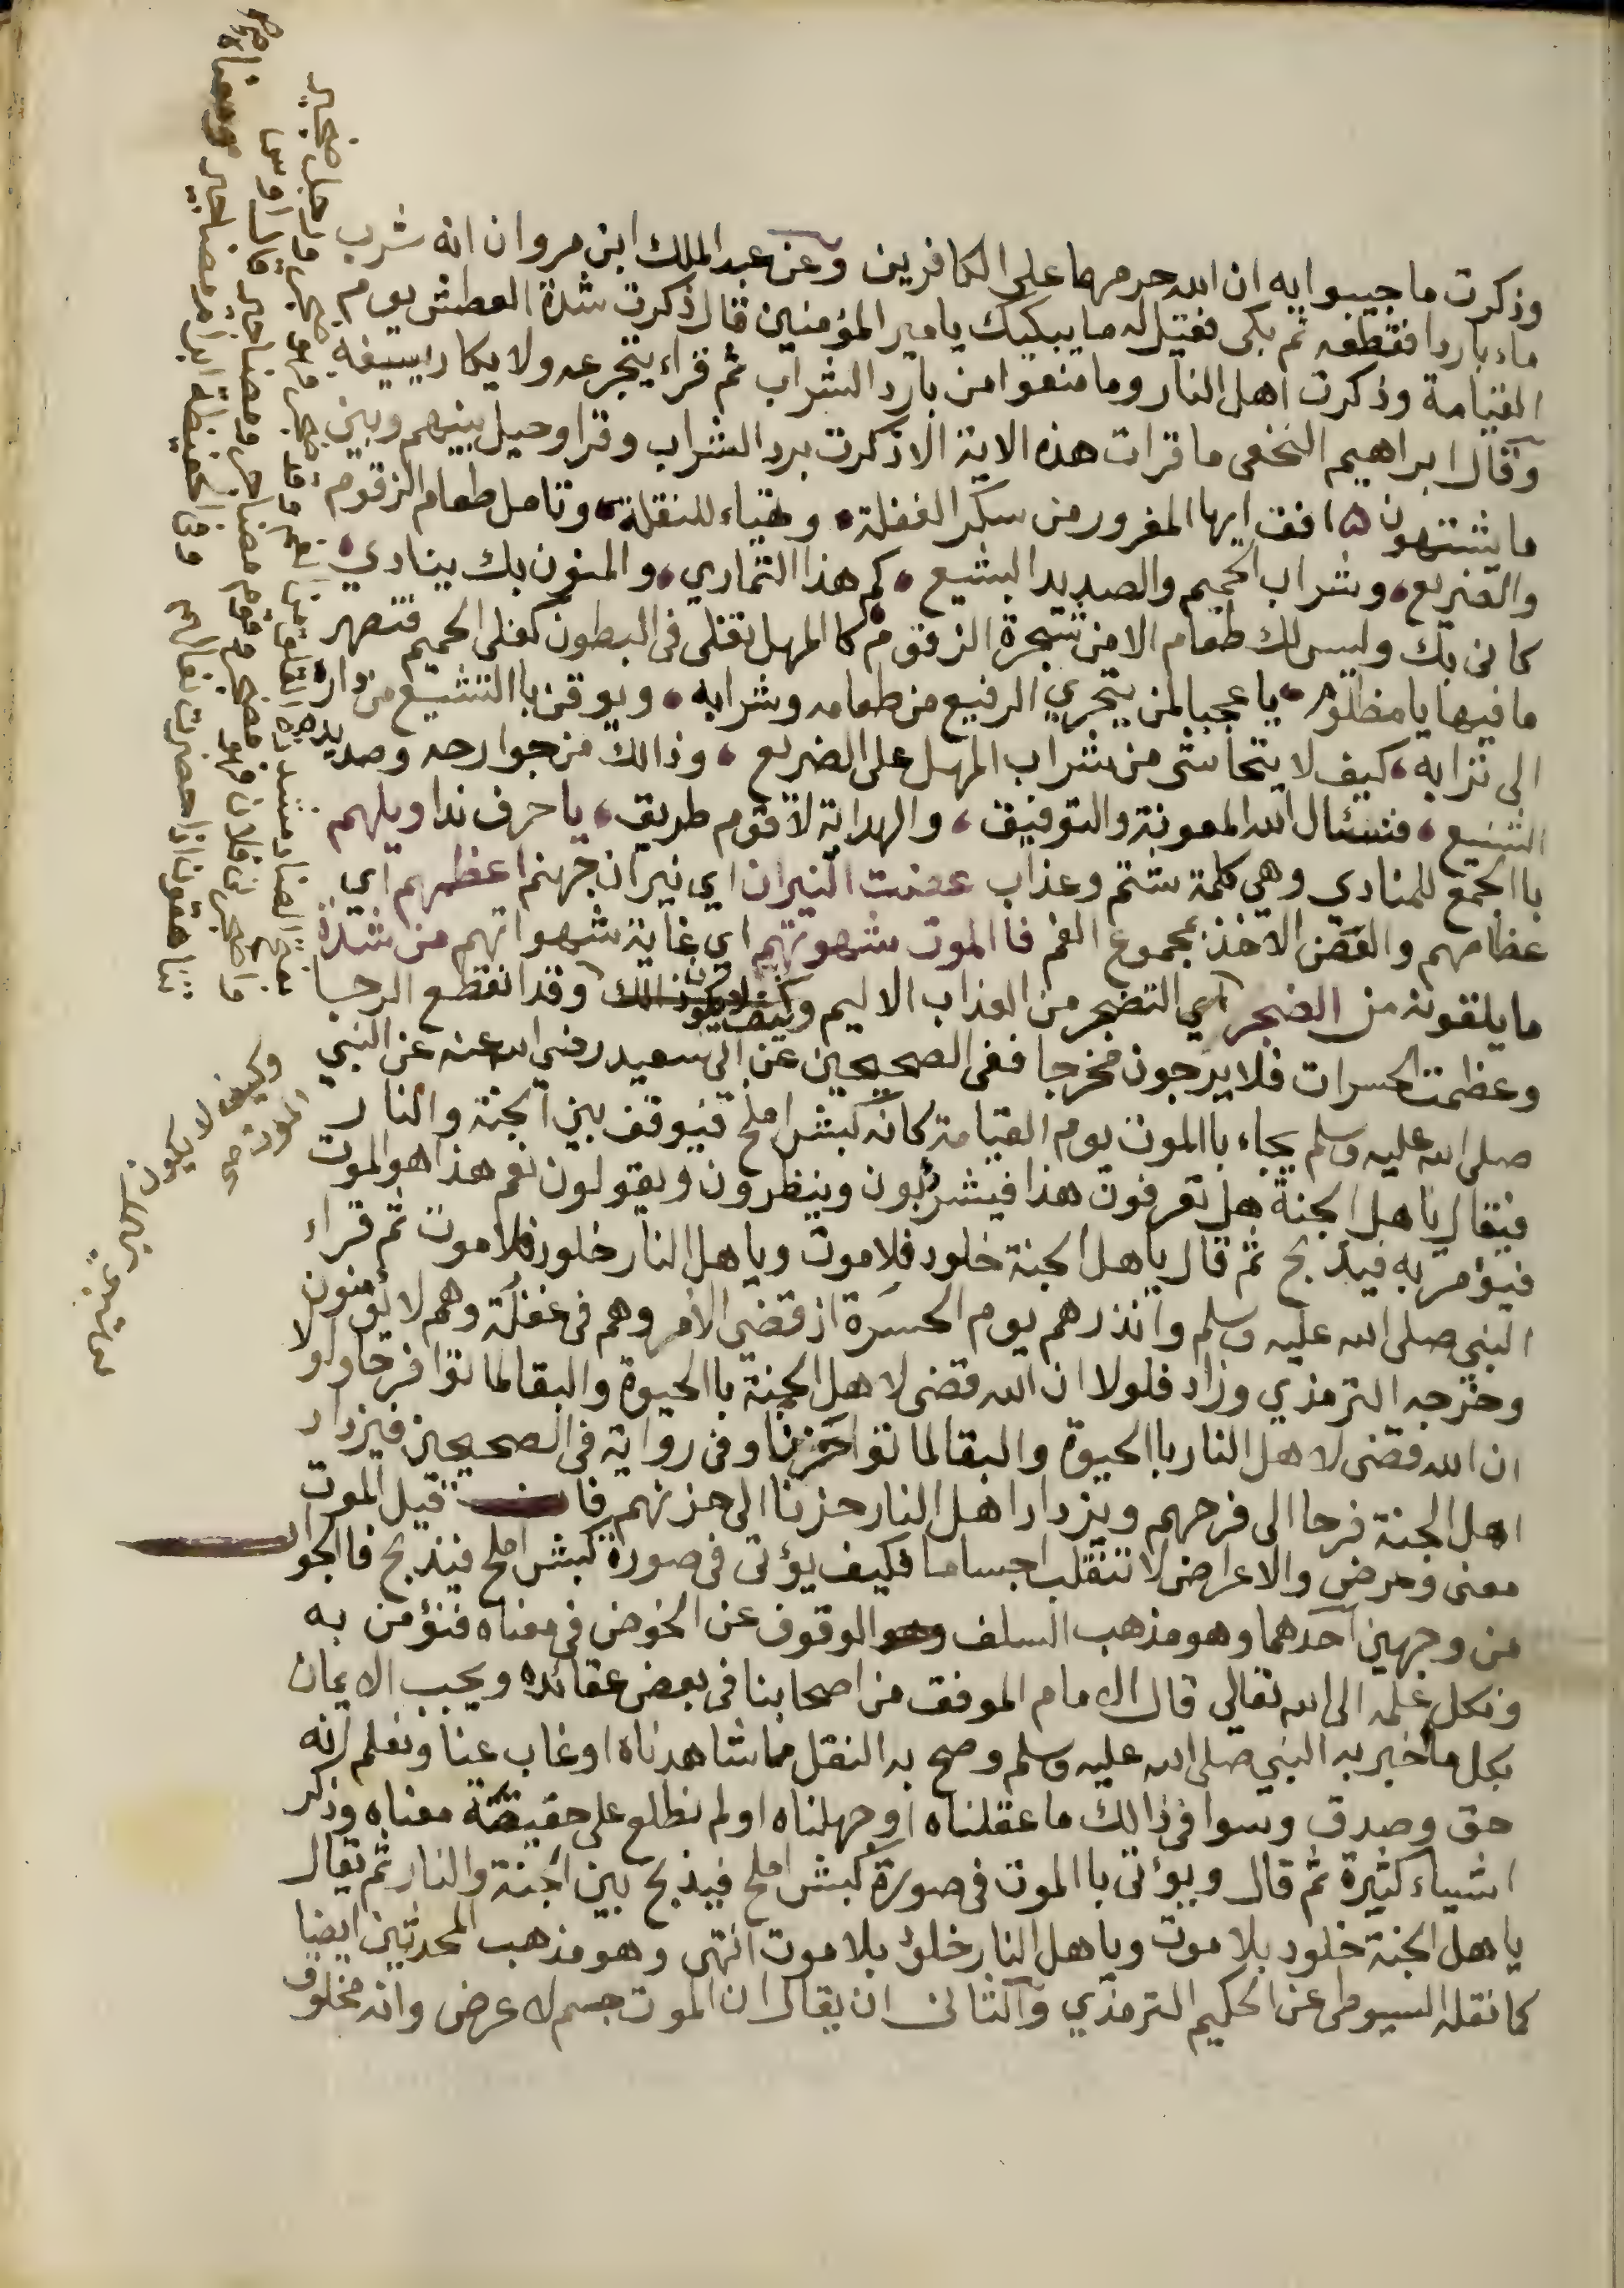 وذكرت ما جيبوا به ان الله حرمهما على الكافرين وعن عبد الملك ابن مروان انه شرب
ماء باردا فقطعه ثم بكى فقيل له ما يبكيك يا مير المؤمنين قال ذكرت شدة العطش يوم
القيامة وذكرت اهل النار وما منعوا من بارد الشراب ثم قراء يتجرعه ولا يكاد يسيغه
وقال ابراهيم النخعى ما قرات هذه الاية الا ذكرت برد الشراب وقرا وحيل بينهم وبين
ما يشتهون افق ايها المغرور من سكر الغفلة وتهياء للنقلة وتامل طعام الزقوم
والضريع وشراب الحميم والصديد البشيع كم هذا التماري والمنون بك ينادي
كانى بك وليس لك طعام الا من شجرة الزقوم كا المهل تغلى فى البطون كغلى الحميم فتصهر
ما فيها يا مظلوم يا عجبا لمن يتحري الرفيع من طعامه وشرابه ويوقن با التشيع من داره
الى ترابه كيف لا يتحاشى من شراب المهل على الضريع وذالك من جوارحه وصديده
الشنيع فنسئال الله المعونة والتوفيق والهداية لاقوم طريق يا حرف ندا ويلهم
با الجمع للمنادي وهي كلمة شتم وعذاب عضت النيران اي نيران جهنم اعظمهم اي
عظامهم والعض الاخذ بمجموع الفم فا الموت شهوتهم اي غاية شهواتهم من شدة
ما يلقونه من الضجر اي التضجر من العذاب الاليم وقد انقطع الرجا
وعظمت الحسرات فلا يرجون مخرجا ففى الصحيحين عن ابى سعيد رضى الله عنه عن النبي
صلى الله عليه وسلم يجاء با الموت يوم القيامة كانه كبش املح فيوقف بين الجنة والنار
فيقال يا هل الجنة هل تعرفون هذا فيشرئبون وينظرون ويقولون نعم هذا هو الموت
فيؤمر به فيذبح ثم قال يا هل الجنة خلود فلا موت ويا هل النار خلود فلا موت ثم قراء
النبي صلى الله عليه وسلم وانذرهم يوم الحسرة اذ قضى الامر وهم فى غفلة وهم لا يؤمنون
وخرجه الترمذي وزاد فلولا ان الله قضى لاهل الجنة با الحيوة والبقا لماتوا فرحا ولولا
ان الله قضى لاهل النار با الحيوة والبقا لماتوا حزنا وفى رواية فى الصحيحين فيزداد
اهل الجنة فرحا الى فرحهم ويزداد اهل النار حزنا الى حزنهم فان قيل الموت
معنى وعرض والاعراض لا تنقلب اجساما فكيف يؤتى فى صورة كبش املح فيذبح فا الجواب
من وجهين احدهما وهو مذهب السلف وهو الوقوف عن الخوض فى معناه فنؤمن به
ونكل علمه الى الله تعالى قال الامام الموفق من اصحابنا فى بعض عقائده ويجب الايمان
بكل ما اخبر به النبي صلى الله عليه وسلم وصح به النقل مما شاهدناه او غاب عنا ونعلم انه
حق وصدق وسوا فى ذالك ما عقلناه او جهلناه او لم نطلع على حقيقة معناه وذكر
اشياء كثيرة ثم قال ويؤتى با الموت فى صورة كبش املح فيذبح بين الجنة والنار ثم يقال
يا هل الجنة خلود بلا موت ويا هل النار خلود بلا موت انتهى وهو مذهب المحدثين ايضا
كما نقله السيوطى عن الحكيم الترمذي والثانى ان يقال ان الموت جسم لا عرض وانه مخلوق
وكيف لا يكون
الموت